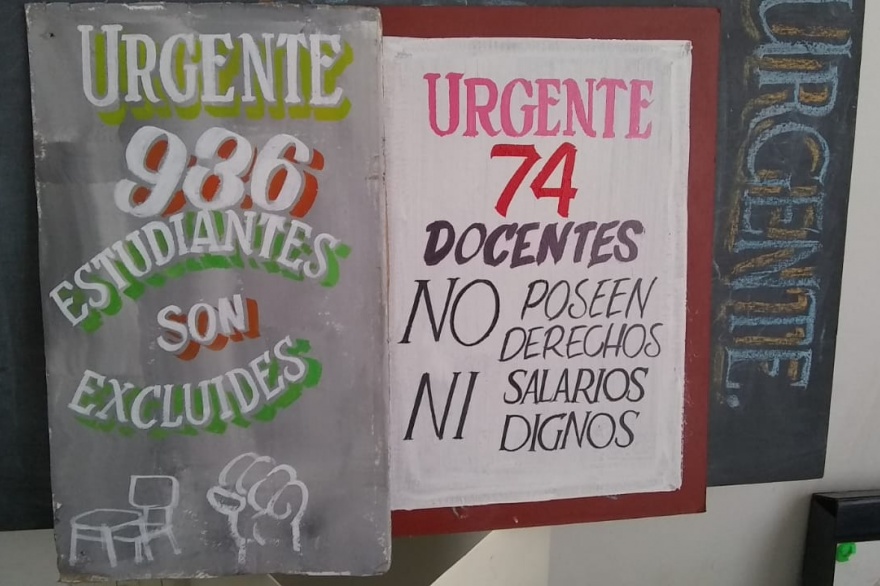 URGENTE
936
ESTUDIANTES
SON
EXCLUIDES
URGENTE
74
DOCENTES
NO POSEEN
DERECHOS
NI SALARIOS
DIGNOS
URGENTE.